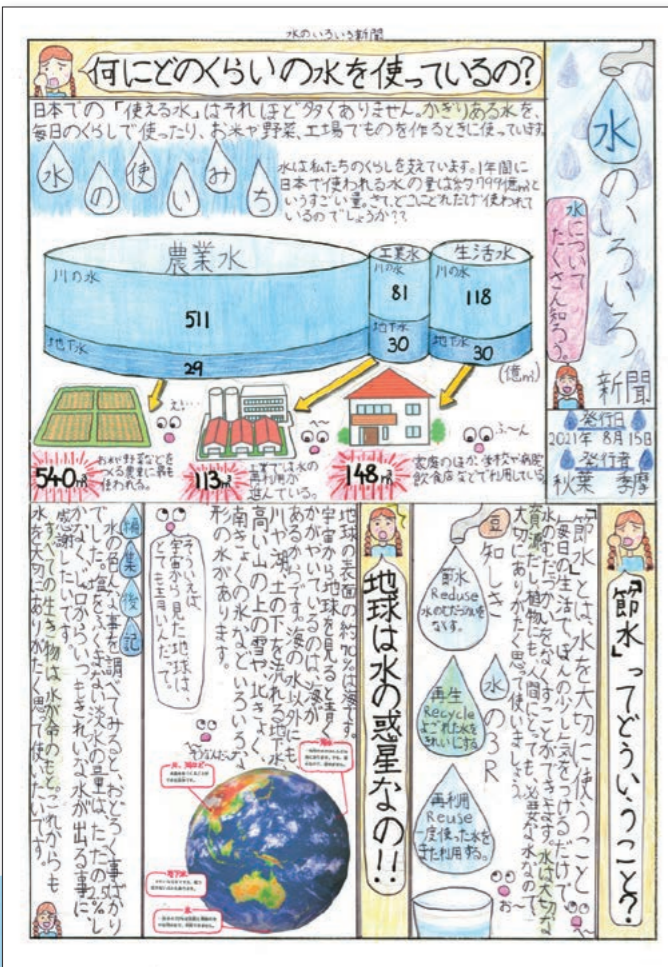 水のいろいろ新聞
水のいろいろ
新聞
水について
たくさん知ろう。
発行日
2021年 8月15日
発行者
秋葉 季摩
何にどのくらいの水を使っているの?
日本での「使える水」はそれほど多くありません。かぎりある水を、
毎日のくらしで使ったり、お米や野菜、工場でものを作るときに使っています。
水の使いみち
水は私たちのくらしを支えています。1年間に
日本で使われる水の量は約799億㎥と
いうすごい量。さて、どこにどれだけ使われて
いるのでしょうか??
農業水
川の水
511
地下水
29
工業水
川の水
81
地下水
30
生活水
川の水
118
地下水
30
(億㎥)
え!…
へ〜
ふ〜ん
540㎥
お米や野菜などを
つくる農業に最も
使われる。
113㎥
工業では水の
再利用が
進んでいる。
148㎥
家庭のほか、学校や病院、
飲食店などで利用している
「節水」ってどういうこと?
「節水」とは、水を大切に使うこと
毎日の生活で、ほんの少し気をつけるだけで
水のむだづかいをなくすことができます。水は大切な
資源だし植物にも、人間にとっても必要な水なので、
大切にありがたく思って使いましょう。
へ〜
お〜
豆知しき
水の3R
節水
Reduse
水のむだづかいを
なくす。
再生
Recycle
よごれた水を
きれいにする
再利用
Reuse
一度使った水を
また利用する。
地球は水の惑星なの!!
地球の表面の約70%は海です。
宇宙から地球を見ると青く
かがやいているのは、海が
あるからです。海の水以外にも、
川や湖、土の下を流れる地下水、
高い山の上の雪や、北きょく、
南きょくの氷など、いろいろな
形の水があります。
そういえば、
宇宙から見た地球は、
とても青いんだって。
そうなんだっ
地下水
編集後記
水の色んな事を調べてみると、おどろく事ばかり
でした。塩をふくまない淡水の量は、たったの2%し
かなく、じゃ口から、いつもきれいな水が出る事に、
感謝したいです。
すべての生き物は水が命のもと。これからも
水を大切にありがたく思って使いたいです。